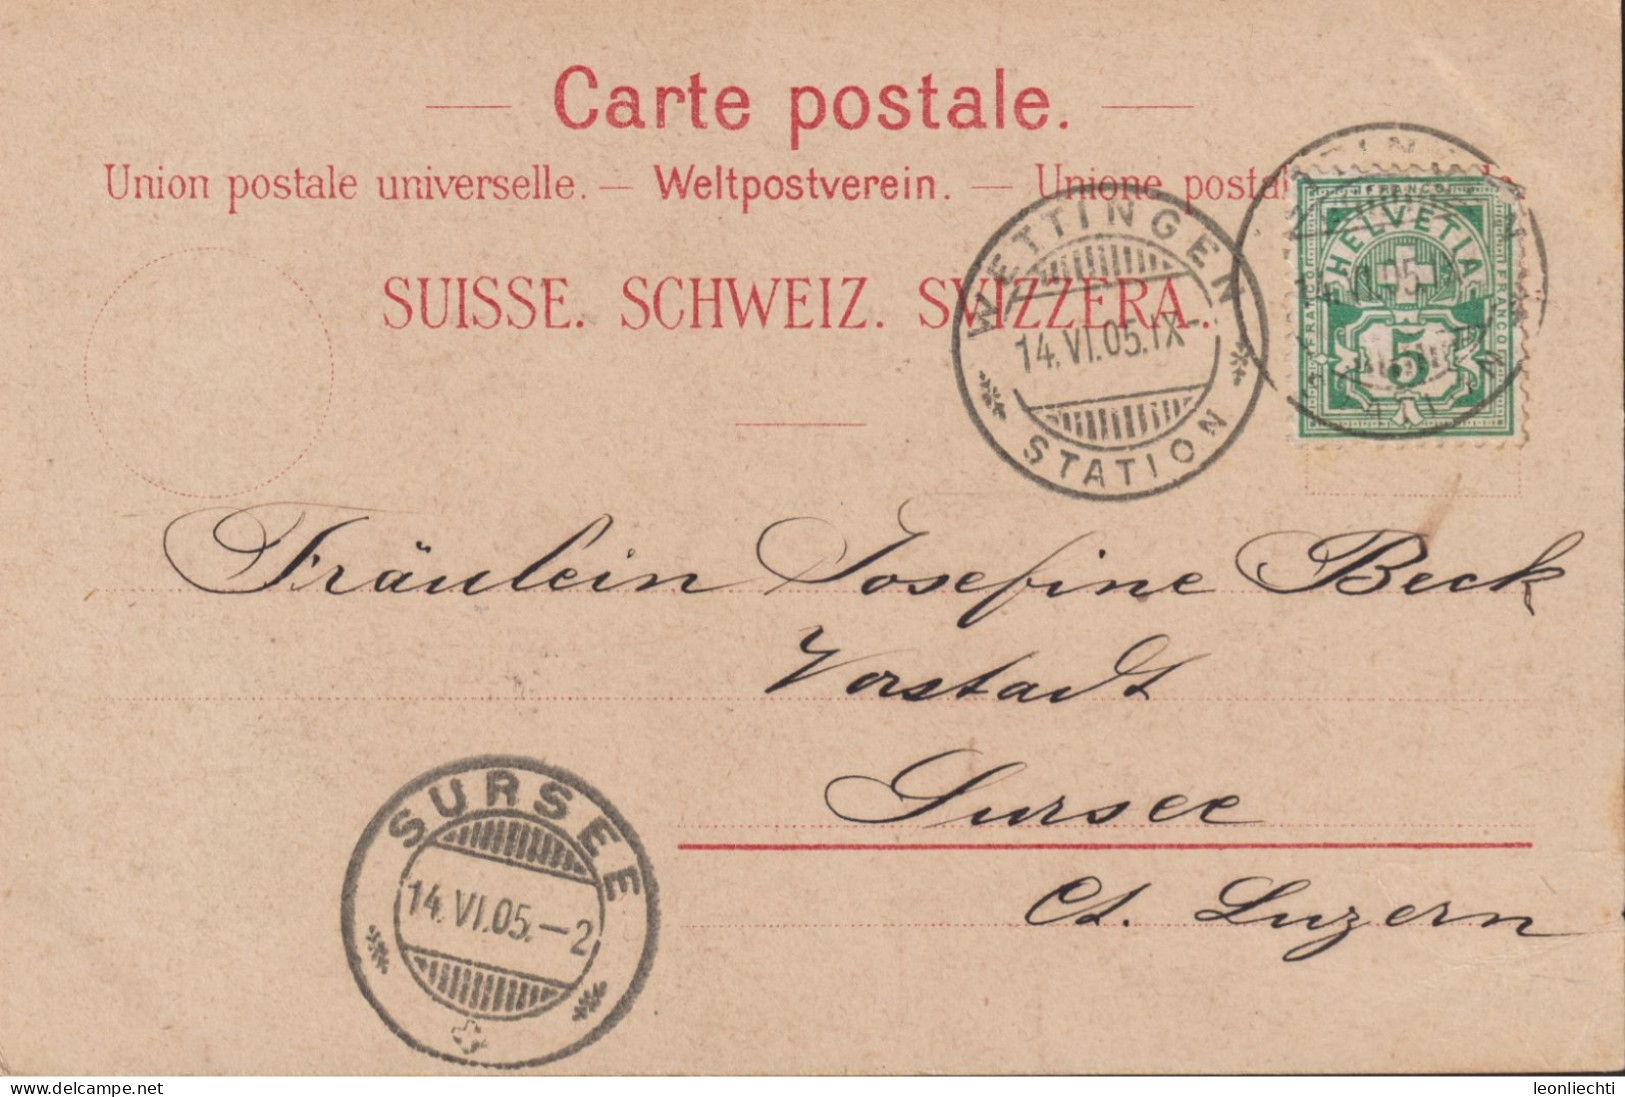 Carte postale.
Union postale universelle. — Weltpostverein. — Unione postal
SUISSE. SCHWEIZ. SVIZZERA.
WETTINGEN
14. VI. 05. IX-
STATION
FRANCO
HELVETIA
FRANCO
FRANCO
5
05
Fräulein Josefine Beck
Vorstadt
Sursee
Ct. Luzern
SURSEE
14. VI. 05. — 2
www.delcampe.net
leonliechti